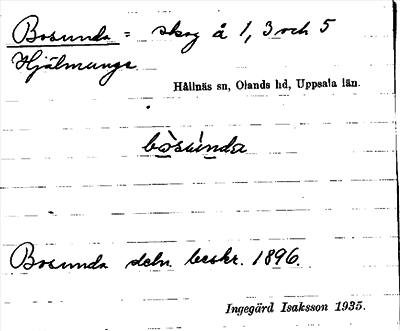 Bosunda = skog å 1, 3 och 5
Hjälmunge
Hållnäs sn, Olands hd, Uppsala län.
bòsúnda
Bosunda deln. beskr. 1896.
Ingegärd Isaksson 1935.